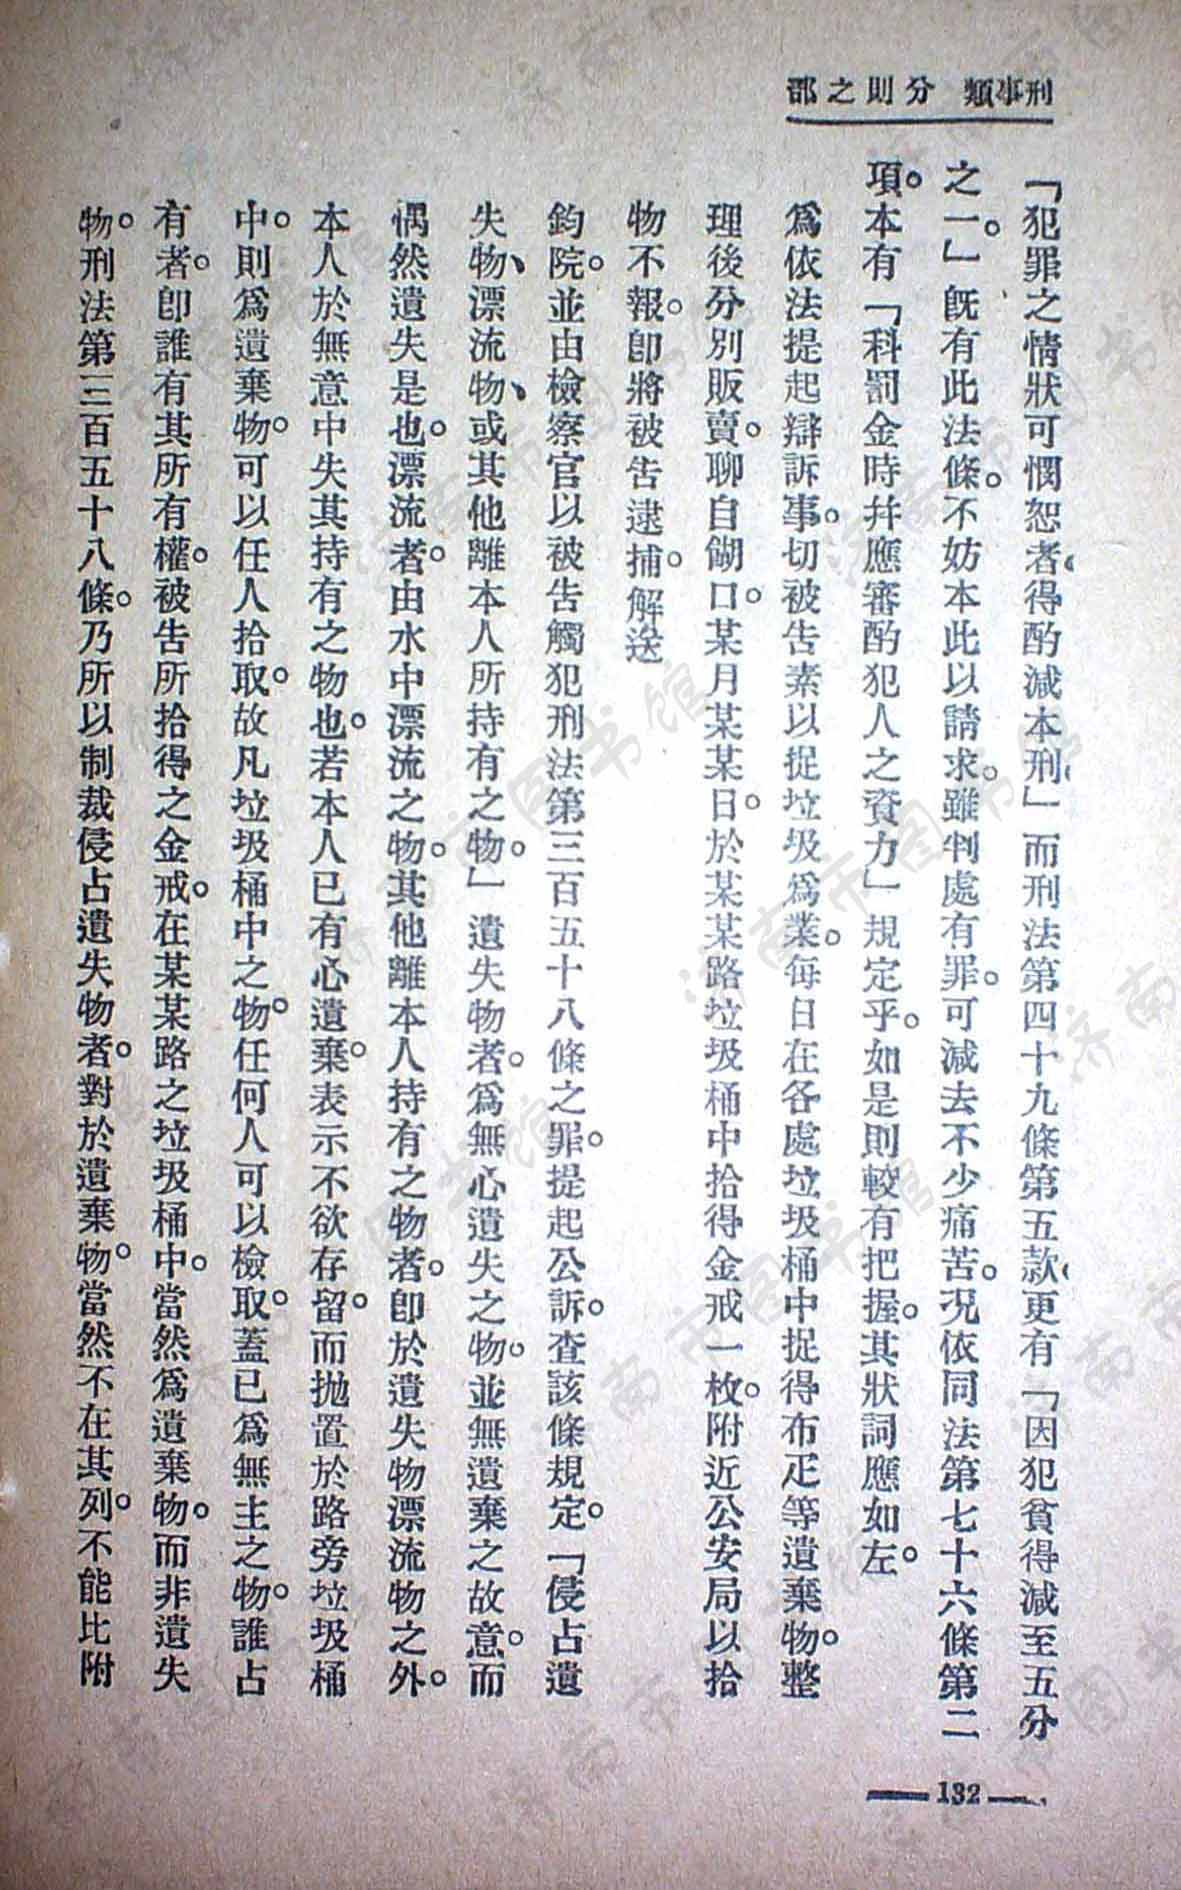 刑事類　分則之部
「犯罪之情狀可憫恕者得酌減本刑」而刑法第四十九條第五款更有「因犯貧得減至五分
之一。」既有此法條。不妨本此以請求。雖判處有罪。可減去不少痛苦。况依同法第七十六條第二
項。本有「科罰金時幷應審酌犯人之資力」規定乎。如是則較有把握。其狀詞應如左。
爲依法提起辯訴事。切被告素以捉垃圾爲業。每日在各處垃圾桶中捉得布疋等遺棄物。整
理後分別販賣。聊自餬口。某月某某日。於某某路垃圾桶中拾得金戒一枚。附近公安局以拾
物不報。卽將被告逮捕。解送
鈞院。並由檢察官以被告觸犯刑法第三百五十八條之罪。提起公訴。查該條規定。「侵占遺
失物、漂流物、或其他離本人所持有之物。」遺失物者。爲無心遺失之物。並無遺棄之故意。而
偶然遺失是也。漂流者。由水中漂流之物。其他離本人持有之物者。卽於遺失物漂流物之外。
本人於無意中失其持有之物也。若本人已有心遺棄。表示不欲存留。而拋置於路旁垃圾桶
中。則爲遺棄物。可以任人拾取。故凡垃圾桶中之物。任何人可以檢取。蓋已爲無主之物。誰占
有者。卽誰有其所有權。被告所拾得之金戒。在某某路之垃圾桶中。當然爲遺棄物。而非遺失
物。刑法第三百五十八條。乃所以制裁侵占遺失物者。對於遺棄物。當然不在其列。不能比附
132
济南市图书馆